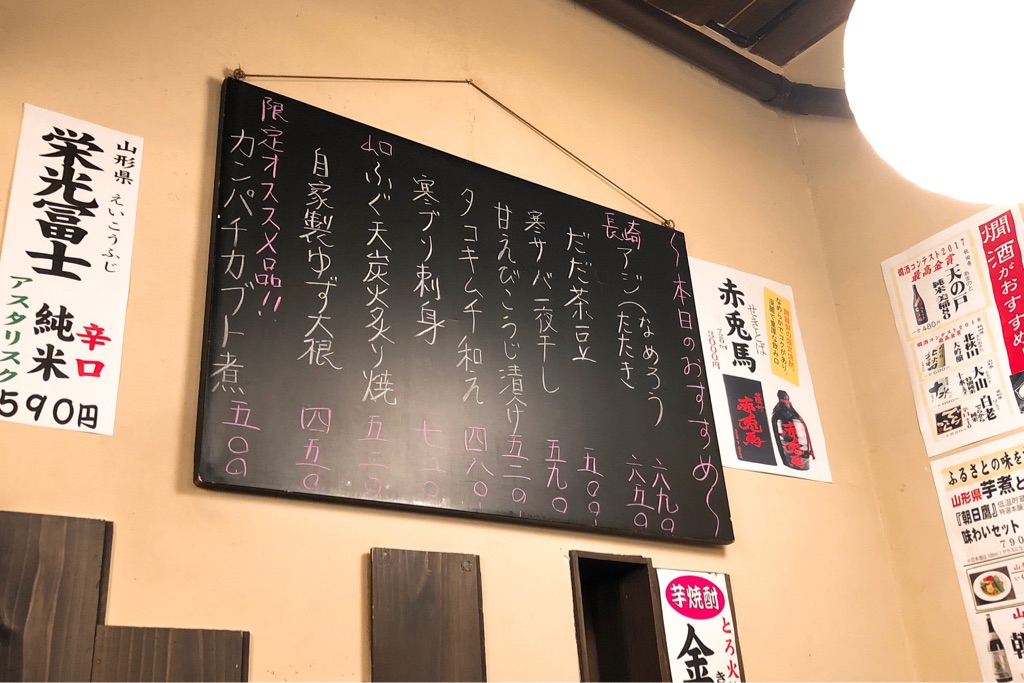 〜本日のおすすめ〜
長崎アジ(なめろう 六九〇
たたき 六五〇
だだ茶豆 五〇〇
寒サバ一夜干し 五九〇
甘えびこうじ漬け 五二〇
タコキムチ和え 四八〇
寒ブリ刺身
ふぐ天炭火炙り焼 五二〇
自家製ゆず大根 四五〇
限定オススメ品!!
カンパチカブト煮 五〇〇
山形県
えいこうふじ
栄光冨士
純米
辛口
アスタリスク
590円
せきとば
赤兎馬
720ml
3000円
赤兎馬
燗酒がおすすめ
燗酒コンテスト2017
最高金賞
天の戸
純米
480
北秋田
大吟醸
大山
白老
ふるさとの味を
山形県芋煮と
『朝日鷹』
低温貯
特選本醸
味わいセット
790
芋焼酎
とろ火
金